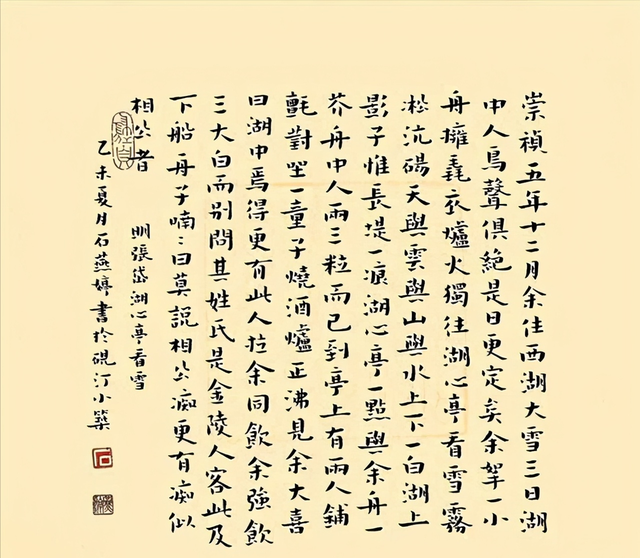 崇禎五年十二月余住西湖大雪三日湖
中人鳥聲俱絕是日更定矣余拏一小
舟擁毳衣爐火獨往湖心亭看雪霧
淞沆碭天與雲與山與水上下一白湖上
影子惟長堤一痕湖心亭一點與余舟一
芥舟中人兩三粒而已到亭上有兩人鋪
氈對坐一童子燒酒爐正沸見余大喜
曰湖中焉得更有此人拉余同飲余強飲
三大白而別問其姓氏是金陵人客此及
下船舟子喃：曰莫說相公痴更有痴似
相公者
明張岱湖心亭看雪
乙未夏月石燕婷書於硯汀小築
石